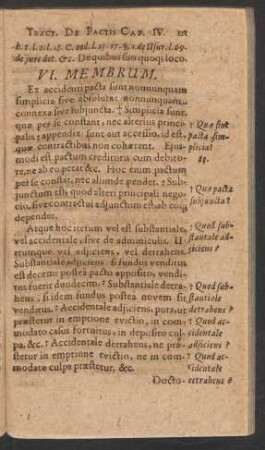 TRACT. DE PACTIS CAP. IV.
h. t. l. 1. l. 18. C. eod. l. 15. 17. §. 1. de Usur. l. 69.
de jure dot. &c. De quibus suo quoq; loco.
VI. MEMBRUM.
Ex accidenti pacta sunt nonnunquam
simplicia sive absoluta: nonnunquam
connexa sive subjuncta. † Simplicia sunt,
quæ per se constant, nec alterius princi-
palis appendix sunt aut accessio, id est,
quæ contractibus non cohærent. Ejus-
modi est pactum creditoris cum debito-
re, ne ab eo petat &c. Hoc enim pactum
per se constat, nec aliunde pendet. † Sub-
junctum est, quod alteri principali nego-
cio, sive contractui adjunctum est, ab eoq́;
dependet.
† Quæ sint
pacta sim-
plicia?
† Quæ pacta
subjuncta?
Atque hoc iterum vel est substantiale,
vel accidentale, sive de adminiculis. U-
trumque vel adjiciens, vel detrahens.
Substantiale adjiciens, si fundus venditus
est decem: postea pacto apposito, vendi-
tus fuerit duodecim. † Substantiale detra-
hens, si idem fundus postea novem sit
venditus. † Accidentale adjiciens, puta, ut
præstetur in emptione evictio, in com-
modato casus fortuitus, in deposito cul-
pa, &c. † Accidentale detrahens, ne præ-
stetur in emptione evictio, ne in com-
modato culpa præstetur, &c.
† Quod sub-
stantale ad-
jiciens?
† Quod sub-
stantiale
detrahens?
† Quod ac-
cidentale
adjiciens?
† Quod ac-
cidentale
detrahens?
Docto-